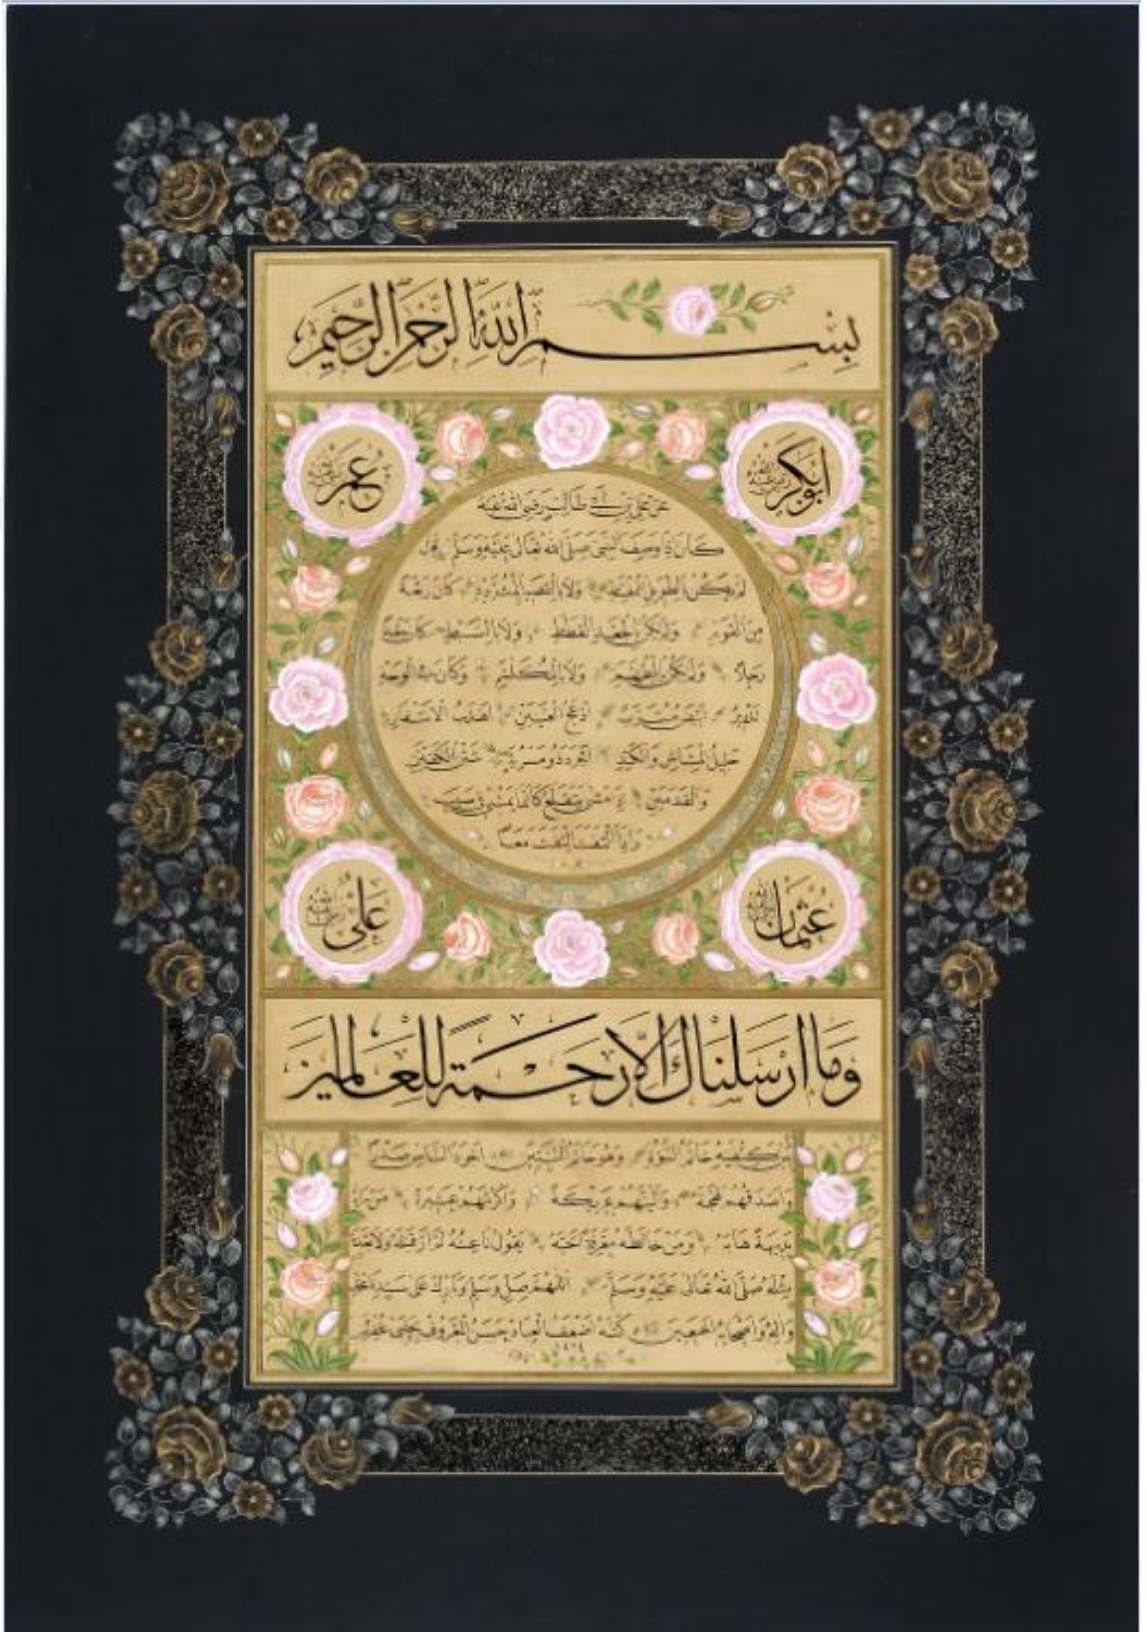 بسم الله الرحمن الرحيم
ابوبكر رضي الله عنه
عمر رضي الله عنه
عن علي بن ابي طالب رضي الله عنه
كان اذا وصف النبي صلى الله تعالى عليه وسلم قال
لم يكن بالطويل الممغط ولا بالقصير المتردد كان ربعة
من القوم ولم يكن بالجعد القطط ولا بالسبط كان جعدا
رجلا ولم يكن بالمطهم ولا بالمكلثم وكان في الوجه
تدوير ابيض مشرب ادعج العينين اهدب الاشفار
جليل المشاش والكتد اجرد ذو مسربة شثن الكفين
والقدمين اذا مشى يتقلع كانما يمشي في صبب
واذا التفت التفت معا
عثمان رضي الله عنه
علي رضي الله عنه
وما ارسلناك الا رحمة للعالمين
بين كتفيه خاتم النبوة وهو خاتم النبيين اجود الناس صدرا
واصدقهم لهجة والينهم عريكة واكرمهم عشيرة من رآه
بديهة هابه ومن خالطه معرفة احبه يقول ناعته لم ار قبله ولا بعده
مثله صلى الله تعالى عليه وسلم اللهم صل وسلم وبارك على سيدنا محمد
واله واصحابه اجمعين كتبه اضعف العباد حسن المعروف